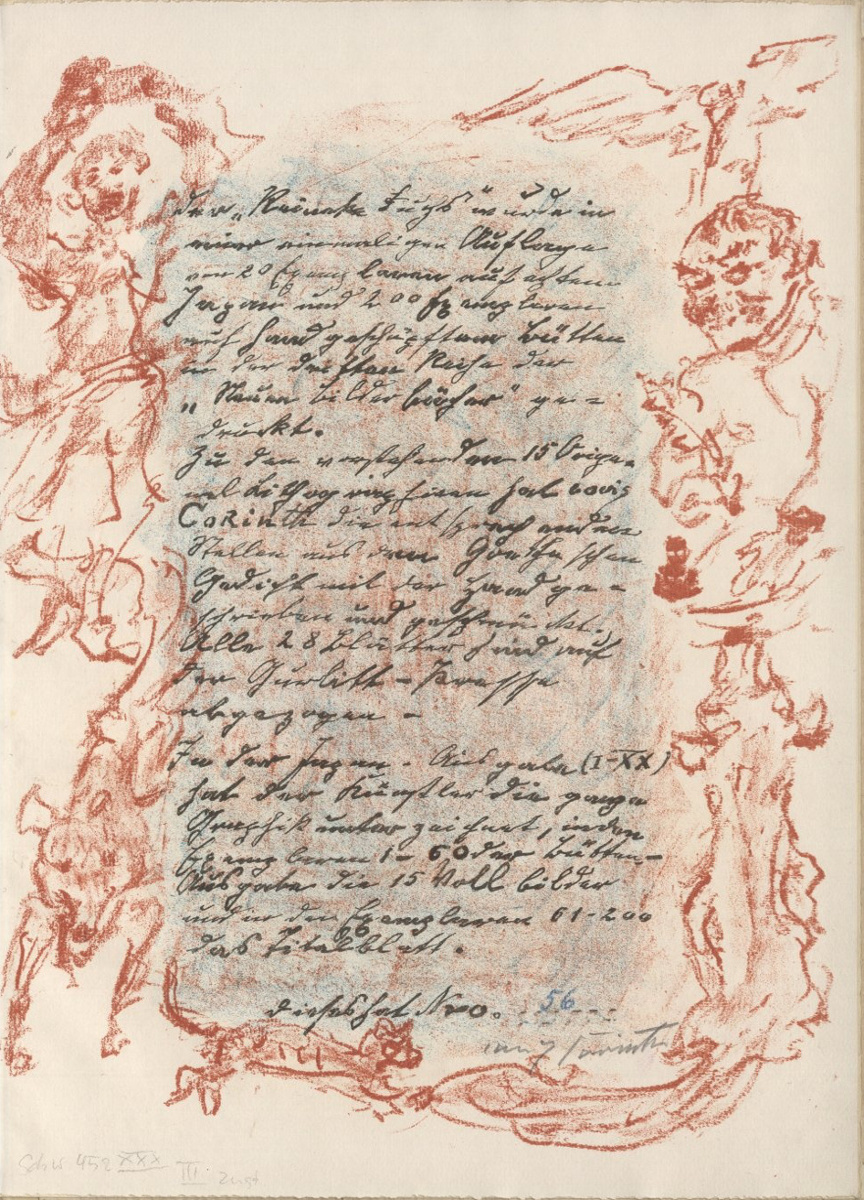 der „Reineke Fuchs" wurde in
einer einmaligen Auflage
von 20 Exemplaren auf echtem
Japan und 200 Exemplaren
auf Hand geschöpftem Bütten
in der dritten Reihe der
„Neuen bilder bücher" ge=
druckt.
Zu den vorstehenden 15 Origi=
nal Lithographieen hat Lovis
Corinth die entsprechenden
Stellen aus dem Goetheschen
Gedicht mit der Hand ge=
schrieben und geschmückt.
Alle 28 Blätter sind auf
der Gurlitt-Presse
abgezogen –
In der Japan-Ausgabe (I-XX)
hat der Künstler die ganze
Graphik unterzeichnet, in den
Exemplaren 1-60 der Bütten-
Ausgabe die 15 Vollbilder
und in den Exemplaren 61-200
das Titelblatt.
dieses hat Nro. 56
Lovis Corinth
Schw. 452 XXX
III. Zust